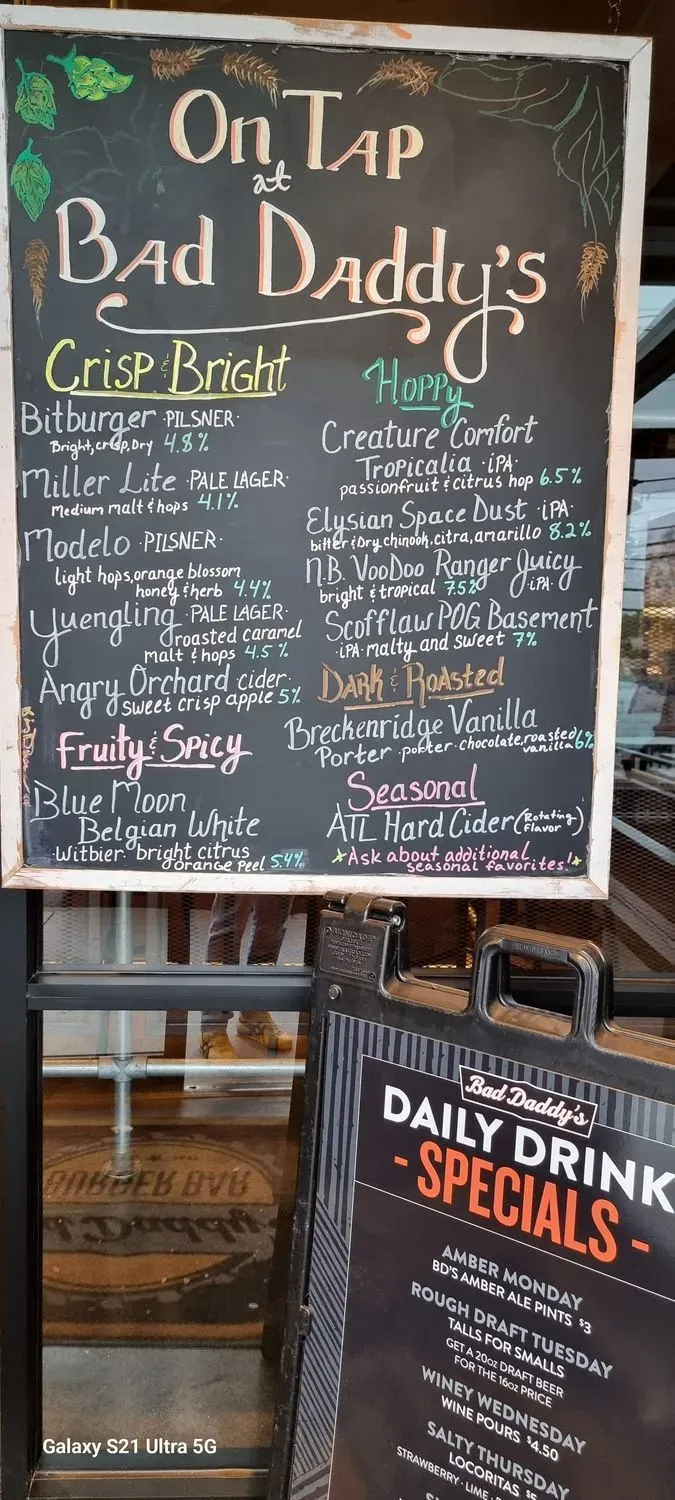 On Tap
at
Bad Daddy's
Crisp & Bright
Bitburger ·PILSNER·
Bright, crisp, Dry 4.8%
Miller Lite ·PALE LAGER·
Medium malt & hops 4.1%
Modelo ·PILSNER·
light hops, orange blossom
honey & herb 4.4%
Yuengling ·PALE LAGER·
roasted caramel
malt & hops 4.5%
Angry Orchard cider·
sweet crisp apple 5%
Fruity & Spicy
Blue Moon
Belgian White
·Witbier· bright citrus
orange peel 5.4%
Hoppy
Creature Comfort
Tropicalia ·iPA·
passionfruit & citrus hop 6.5%
Elysian Space Dust ·iPA·
bitter & Dry chinook, citra, amarillo 8.2%
N.B. VooDoo Ranger Juicy
bright & tropical 7.5% ·iPA·
Scofflaw POG Basement
·iPA· malty and sweet 7%
Dark & Roasted
Breckenridge Vanilla
Porter ·porter· chocolate, roasted
vanilla 6%
Seasonal
ATL Hard Cider (Rotating
Flavor)
*Ask about additional
seasonal favorites!*
SIGNICADE
Bad Daddy's
DAILY DRINK
- SPECIALS -
AMBER MONDAY
BD'S AMBER ALE PINTS $3
ROUGH DRAFT TUESDAY
TALLS FOR SMALLS
GET A 20oz DRAFT BEER
FOR THE 16oz PRICE
WINEY WEDNESDAY
WINE POURS $4.50
SALTY THURSDAY
LOCORITAS $5
STRAWBERRY · LIME ·
BURGER BAR
Bad Daddy's
Galaxy S21 Ultra 5G